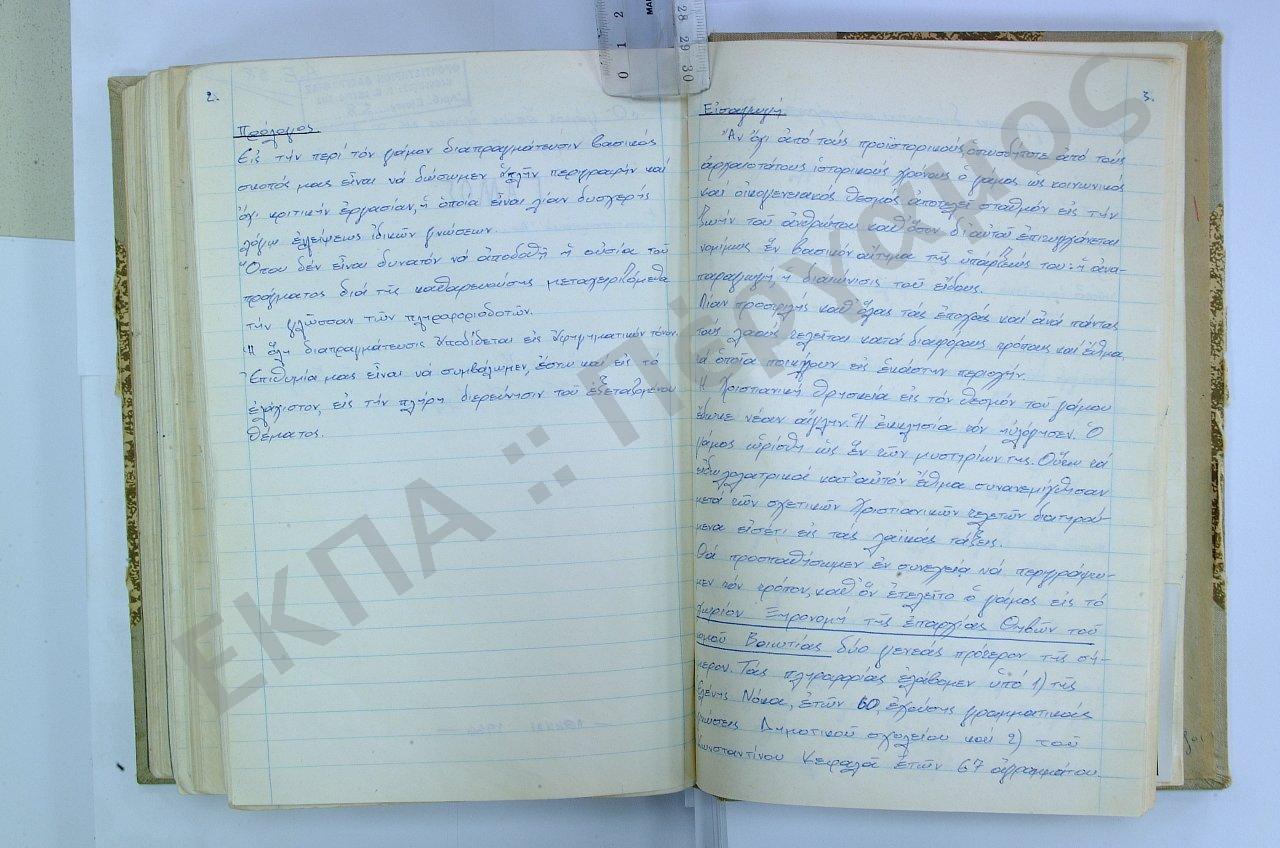 2.
Πρόλογος
Εἰς τήν περί τόν γάμον διαπραγμάτευσιν βασικός
σκοπός μας εἶναι νά δώσωμεν ἁπλῆν περιγραφήν καί
ὄχι κριτικήν ἐργασίαν, ἡ ὁποία εἶναι λίαν δυσχερής
λόγῳ ἐλλείψεως εἰδικῶν γνώσεων.
Ὅπου δέν εἶναι δυνατόν νά ἀποδοθῇ ἡ οὐσία τοῦ
πράγματος διά τῆς καθαρευούσης μεταχειριζόμεθα
τήν γλῶσσαν τῶν πληροφοριοδοτῶν.
Ἡ ὅλη διαπραγμάτευσις ὑποδίδεται εἰς ἀφηγηματικόν τόνον.
Ἐπιθυμία μας εἶναι νά συμβάλωμεν, ἔστω καί εἰς τό
ἐλάχιστον, εἰς τήν πλήρη διερεύνησιν τοῦ ἐξεταζομένου
θέματος.
3.
Εἰσαγωγή
Ἄν ὄχι ἀπό τούς προϊστορικούς, ὁπωσδήποτε ἀπό τούς
ἀρχαιοτάτους ἱστορικούς χρόνους ὁ γάμος ὡς κοινωνικός
καί οἰκογενειακός θεσμός ἀποτελεῖ σταθμόν εἰς τήν
ζωήν τοῦ ἀνθρώπου καθ' ὅσον δι' αὐτοῦ ἐπιτυγχάνεται
νομίμως ἕν βασικόν αἴτημα τῆς ὑπάρξεώς του: ἡ ἀνα-
παραγωγή, ἡ διαιώνισις τοῦ εἴδους.
Λίαν προσφιλής καθ' ὅλας τάς ἐποχάς καί ἀνά πάντας
τούς λαούς τελεῖται κατά διαφόρους τρόπους καί ἔθιμα,
τά ὁποῖα ποικίλλουν εἰς ἑκάστην περιοχήν.
Ἡ Χριστιανική θρησκεία εἰς τόν θεσμόν τοῦ γάμου
ἔδωκε νέαν αἴγλην. Ἡ ἐκκλησία τόν ηὐλόγησεν. Ὁ
γάμος ὡρίσθη ὡς ἕν τῶν μυστηρίων της. Οὕτω τά
εἰδωλολατρικά κατ' αὐτόν ἔθιμα συνανεμίχθησαν
μετά τῶν σχετικῶν Χριστιανικῶν τελετῶν διατηρού-
μενα εἰσέτι εἰς τάς λαϊκάς τάξεις.
Θά προσπαθήσωμεν ἐν συνεχείᾳ νά περιγράψω-
μεν τόν τρόπον, καθ' ὅν ἐτελεῖτο ὁ γάμος εἰς τό
χωρίον Ξηρονομή τῆς ἐπαρχίας Θηβῶν τοῦ
νομοῦ Βοιωτίας δύο γενεάς πρότερον τῆς σή-
μερον. Τάς πληροφορίας ἐλάβομεν ὑπό 1) τῆς
Ἑλένης Νάκα, ἐτῶν 60, ἐχούσης γραμματικάς
γνώσεις Δημοτικοῦ σχολείου καί 2) τοῦ
Κωνσταντίνου Κεφαλᾶ ἐτῶν 67 ἀγραμμάτου.
0 1 2
28 29 30
ΕΚΠΑ :: Πέργαμος